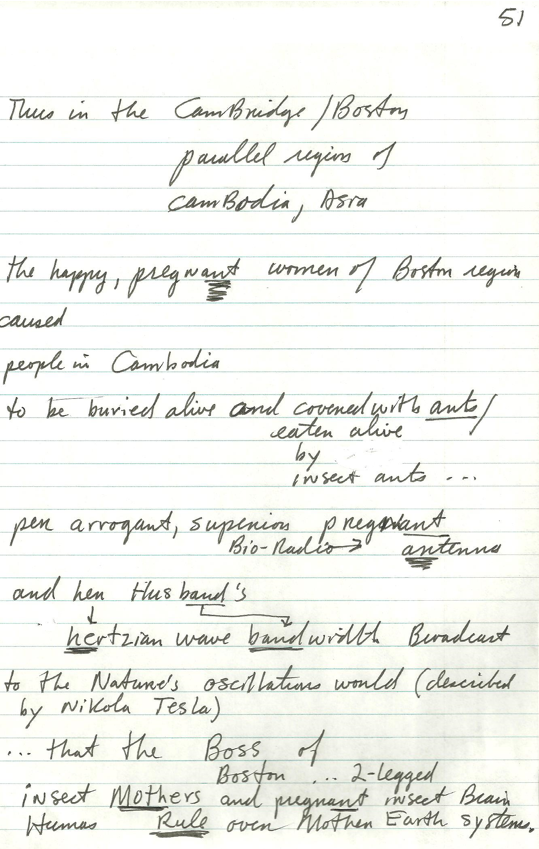 51
Thus in the CamBridge / Boston
parallel region of
camBodia, Asia
the happy, pregnant women of Boston region
caused
people in Cambodia
to be buried alive and covered with ants/
eaten alive
by
insect ants ...
per arrogant, superior pregnant
Bio-Radio→ antenna
and her Husband's
hertzian wave bandwidth Broadcast
to the Nature's oscillations world (described
by Nikola Tesla)
... that the Boss of
Boston ... 2-legged
insect Mothers and pregnant insect Brain
Humas Rule over Mother Earth systems.